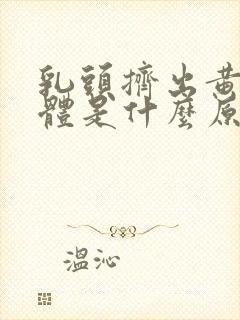 乳頭擠出黃
體是什麼原
溫沁